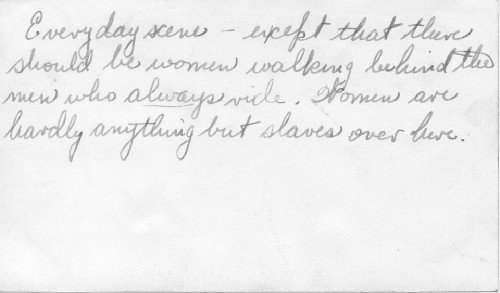 Everyday scene - except that there
should be women walking behind the
men who always ride. Women are
hardly anything but slaves over here.